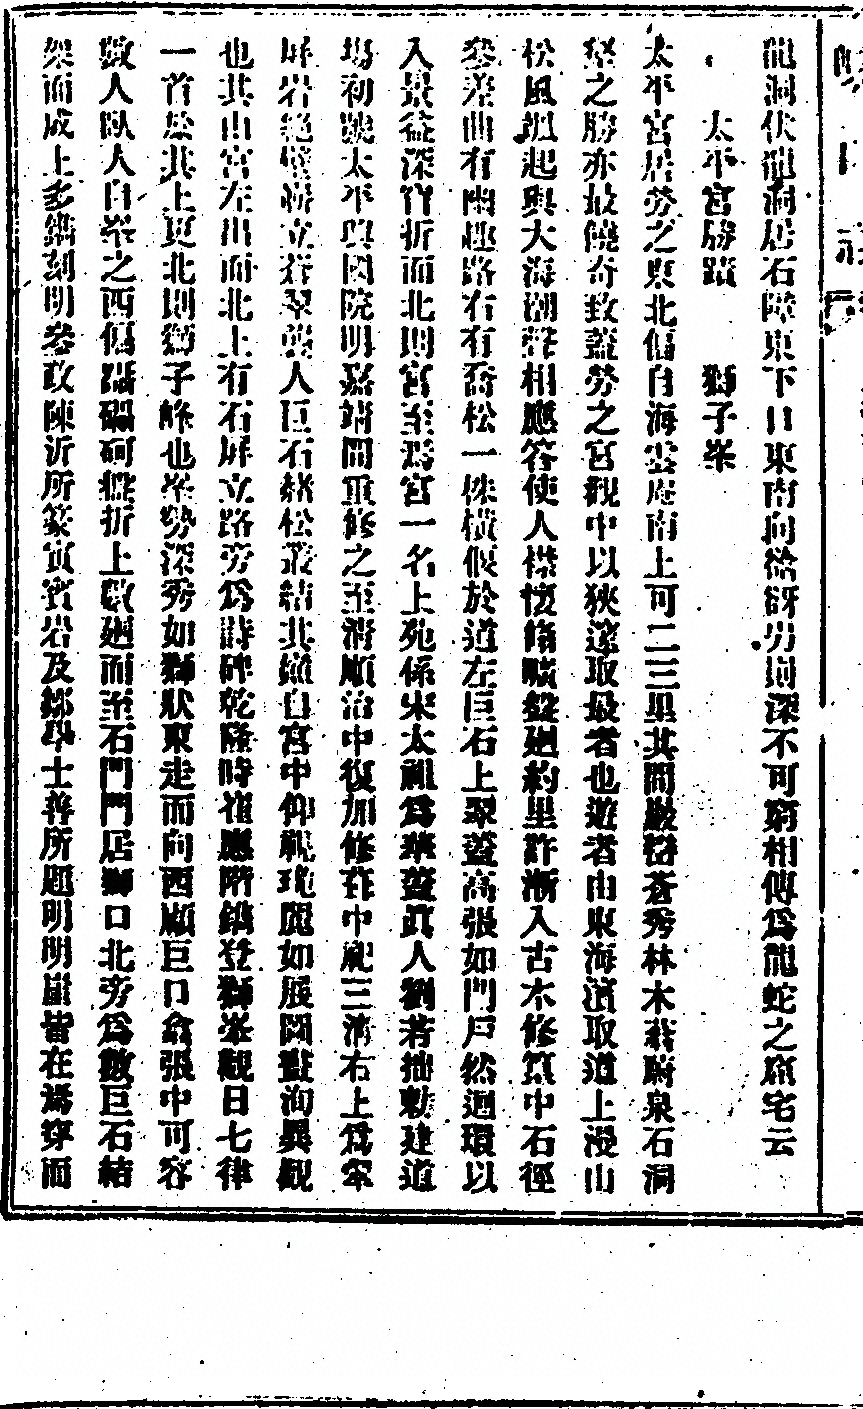 龍洞伏龍洞居石障東下口東南向谽谺另則深不可窮相傳爲龍蛇之窟宅云
太平宮勝蹟 獅子峯
太平宮居勞之東北偏自海雲庵南上可二三里其間巖壑蒼秀林木蓊蔚泉石洞
壑之勝亦最饒奇致蓋勞之宮觀中以狹邃取最者也遊者由東海濱取道上漫山
松風謖起與大海潮聲相應答使人襟懷脩曠盤廻約里許漸入古木修篁中石徑
參差曲有幽趣路右有喬松一株橫偃於道左巨石上翠蓋高張如門戶然迴環以
入景益深窅折而北則宮至焉宮一名上苑係宋太祖爲華蓋眞人劉若拙勅建道
塲初號太平興國院明嘉靖間重修之至淸順治中復加修葺中祀三淸右上爲
屏岩絶壁嶄立蒼翠襲人巨石赭松叢結其巔自宮中仰觀瑰麗如展圖畫洵異觀
也其由宮左出而北上有石屏立路旁爲詩碑乾隆時崔應階鐫登獅峯觀日七律
一首於其上更北則獅子峰也峯勢深秀如獅狀東走而向西顧巨口翕張中可容
數人臥人自峯之西偏磊磈砢磴折上數廻而至石門門居獅口北旁爲數巨石結
架而成上多鐫刻明參政陳沂所篆寅賓岩及鄒學士善所題明明崖皆在焉穿而